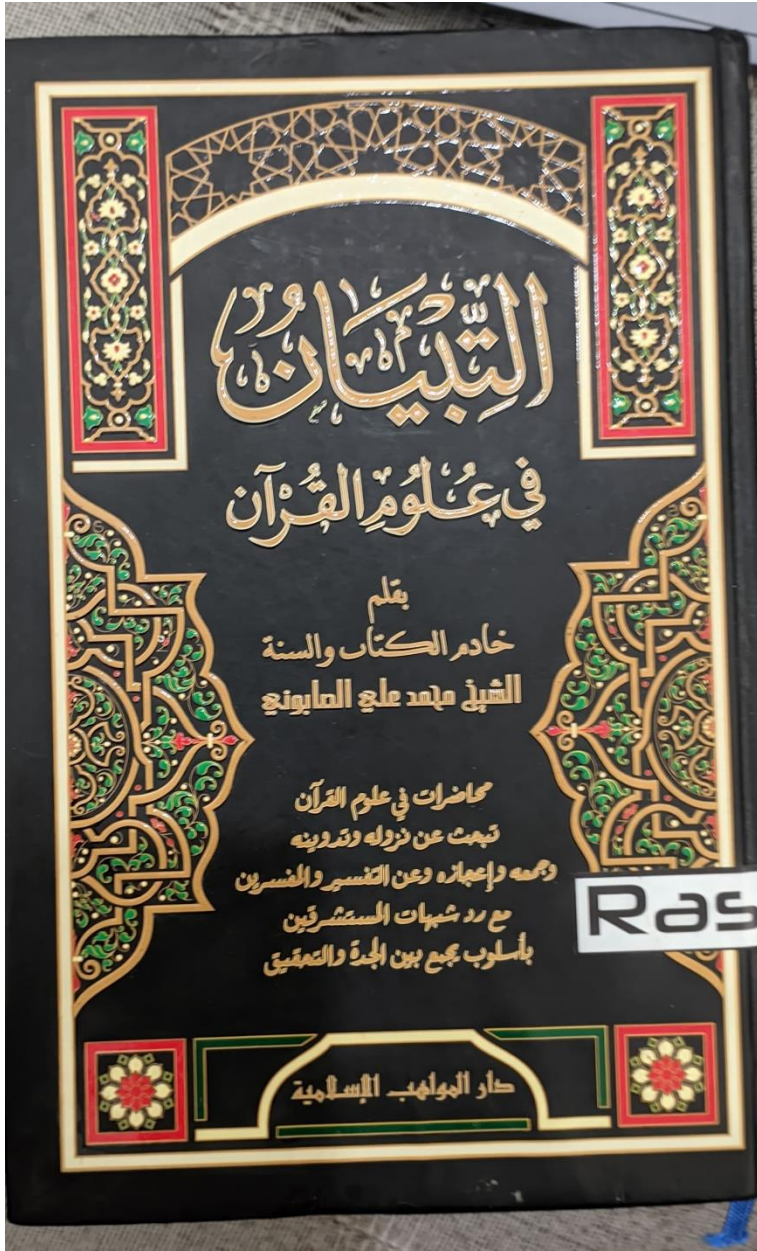 التِّبْيَانُ
في عُلُومِ القُرْآن
بقلم
خادم الكتاب والسنة
الشيخ محمد علي الصابوني
محاضرات في علوم القرآن
تبحث عن نزوله وتدوينه
وجمعه وإعجازه وعن التفسير والمفسرين
مع رد شبهات المستشرقين
بأسلوب يجمع بين الجدة والتحقيق
Ras
دار المواهب الإسلامية